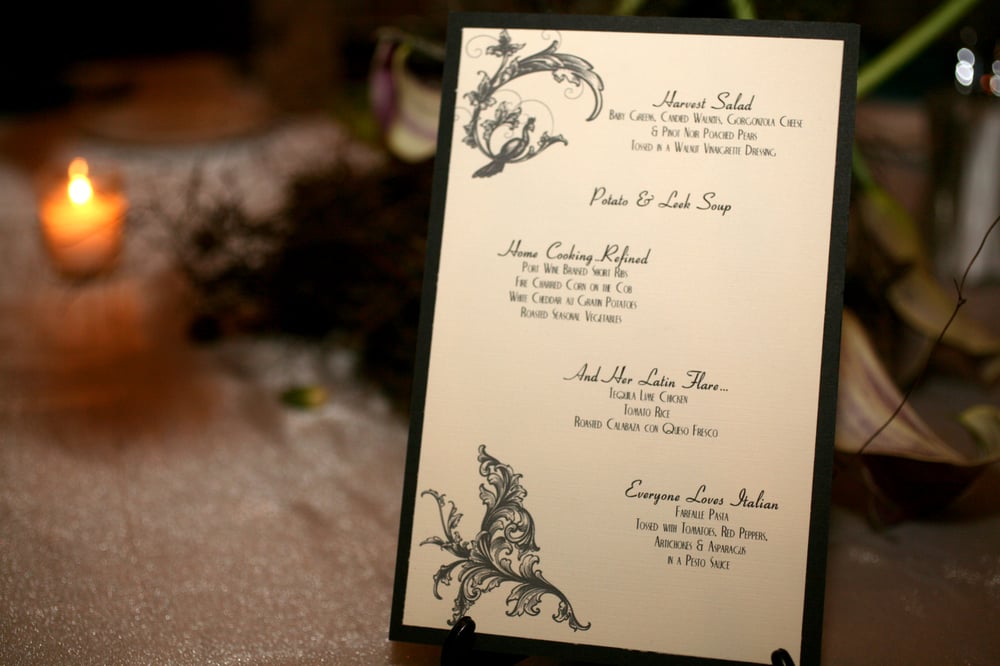 Harvest Salad
Baby Greens, Candied Walnuts, Gorgonzola Cheese
& Pinot Noir Poached Pears
Tossed in a Walnut Vinaigrette Dressing
Potato & Leek Soup
Home Cooking...Refined
Port Wine Braised Short Ribs
Fire Charred Corn on the Cob
White Cheddar au Gratin Potatoes
Roasted Seasonal Vegetables
And Her Latin Flare...
Tequila Lime Chicken
Tomato Rice
Roasted Calabaza con Queso Fresco
Everyone Loves Italian
Farfalle Pasta
Tossed with Tomatoes, Red Peppers,
Artichokes & Asparagus
in a Pesto Sauce